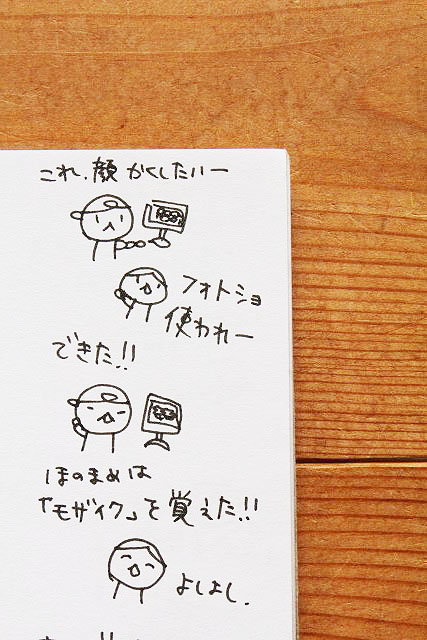 これ、顔かくしたいー
フォトショ
使われー
できた!!
ほのまめは
「モザイク」を覚えた!!
よしよし.